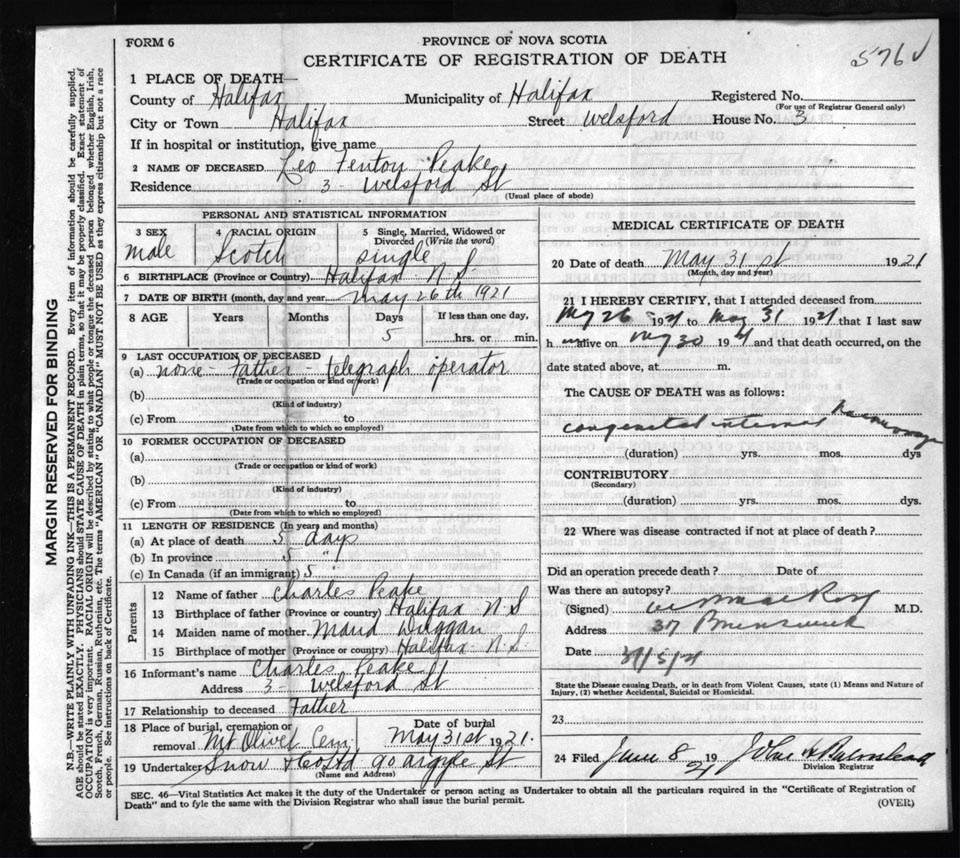 FORM 6
PROVINCE OF NOVA SCOTIA
CERTIFICATE OF REGISTRATION OF DEATH
576
1 PLACE OF DEATH—
County of Halifax Municipality of Halifax Registered No.
(For use of Registrar General only)
City or Town Halifax Street Welsford House No. 3
If in hospital or institution, give name
2 NAME OF DECEASED Leo Fenton Peake
Residence 3 - Welsford St
(Usual place of abode)
PERSONAL AND STATISTICAL INFORMATION
3 SEX male
4 RACIAL ORIGIN Scotch
5 Single, Married, Widowed or Divorced (Write the word) single
6 BIRTHPLACE (Province or Country) Halifax N.S.
7 DATE OF BIRTH (month, day and year) May 26th 1921
8 AGE Years Months Days If less than one day,
5 hrs. or min.
9 LAST OCCUPATION OF DECEASED
(a) none - Father - telegraph operator
(Trade or occupation or kind of work)
(b)
(Kind of industry)
(c) From to
(Date from which to which so employed)
10 FORMER OCCUPATION OF DECEASED
(a)
(Trade or occupation or kind of work)
(b)
(Kind of industry)
(c) From to
(Date from which to which so employed)
11 LENGTH OF RESIDENCE (In years and months)
(a) At place of death 5 days
(b) In province 5 "
(c) In Canada (if an immigrant) 5
Parents
12 Name of father Charles Peake
13 Birthplace of father (Province or country) Halifax N.S
14 Maiden name of mother Maud Duggan
15 Birthplace of mother (Province or country) Halifax N.S.
16 Informant's name Charles Peake
Address 3 - Welsford St
17 Relationship to deceased Father
18 Place of burial, cremation or removal Mt Olivet Cem
Date of burial May 31st 1921.
19 Undertaker Snow & Co Ltd 90 Argyle St
(Name and Address)
MEDICAL CERTIFICATE OF DEATH
20 Date of death May 31st 1921
(Month, day and year)
21 I HEREBY CERTIFY, that I attended deceased from
May 26 1921 to May 31 1921 that I last saw
h alive on May 30 1921 and that death occurred, on the
date stated above, at m.
The CAUSE OF DEATH was as follows:
congenital internal haemorrage
(duration) yrs. mos. dys
CONTRIBUTORY
(Secondary)
(duration) yrs. mos. dys.
22 Where was disease contracted if not at place of death?
Did an operation precede death? Date of
Was there an autopsy?
(Signed) M.D.
Address 37 Brunswick
Date 31/5/21
State the Disease causing Death, or in death from Violent Causes, state (1) Means and Nature of
Injury, (2) whether Accidental, Suicidal or Homicidal.
23
24 Filed June 8 1921
Division Registrar
SEC. 46—Vital Statistics Act makes it the duty of the Undertaker or person acting as Undertaker to obtain all the particulars required in the "Certificate of Registration of
Death" and to fyle the same with the Division Registrar who shall issue the burial permit.
(OVER)
MARGIN RESERVED FOR BINDING
N.B.—WRITE PLAINLY WITH UNFADING INK—THIS IS A PERMANENT RECORD. Every item of information should be carefully supplied.
AGE should be stated EXACTLY. PHYSICIANS should STATE CAUSE OF DEATH in plain terms, so that it may be properly classified. Exact statement of
OCCUPATION is very important. RACIAL ORIGIN will be described by stating to what people or tongue the deceased person belonged whether English, Irish,
Scotch, French, German, Russian, Ruthenian, etc. The terms "AMERICAN" OR "CANADIAN" MUST NOT BE USED as they express citizenship but not a race
or people. See instructions on back of Certificate.